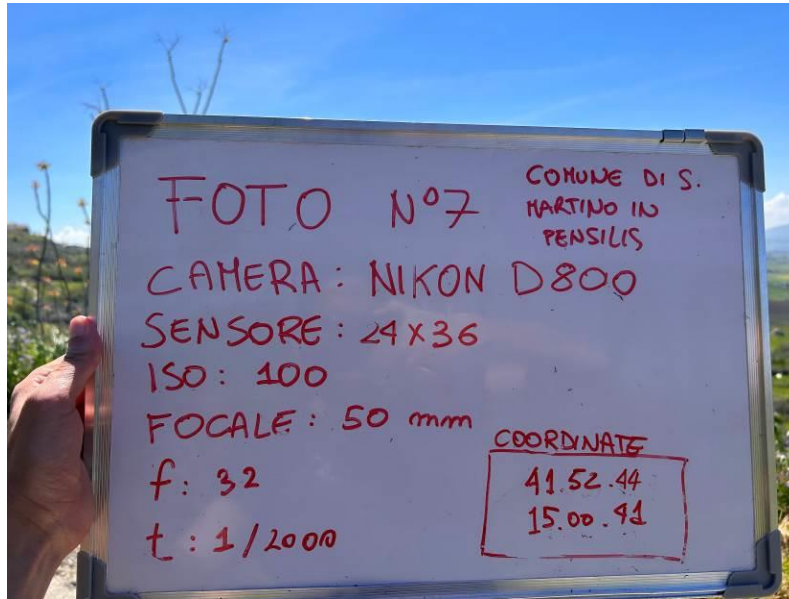 FOTO N°7
COMUNE DI S.
MARTINO IN
PENSILIS
CAMERA: NIKON D800
SENSORE: 24x36
ISO: 100
FOCALE: 50 mm
f: 32
t: 1/2000
COORDINATE
41.52.44
15.00.41